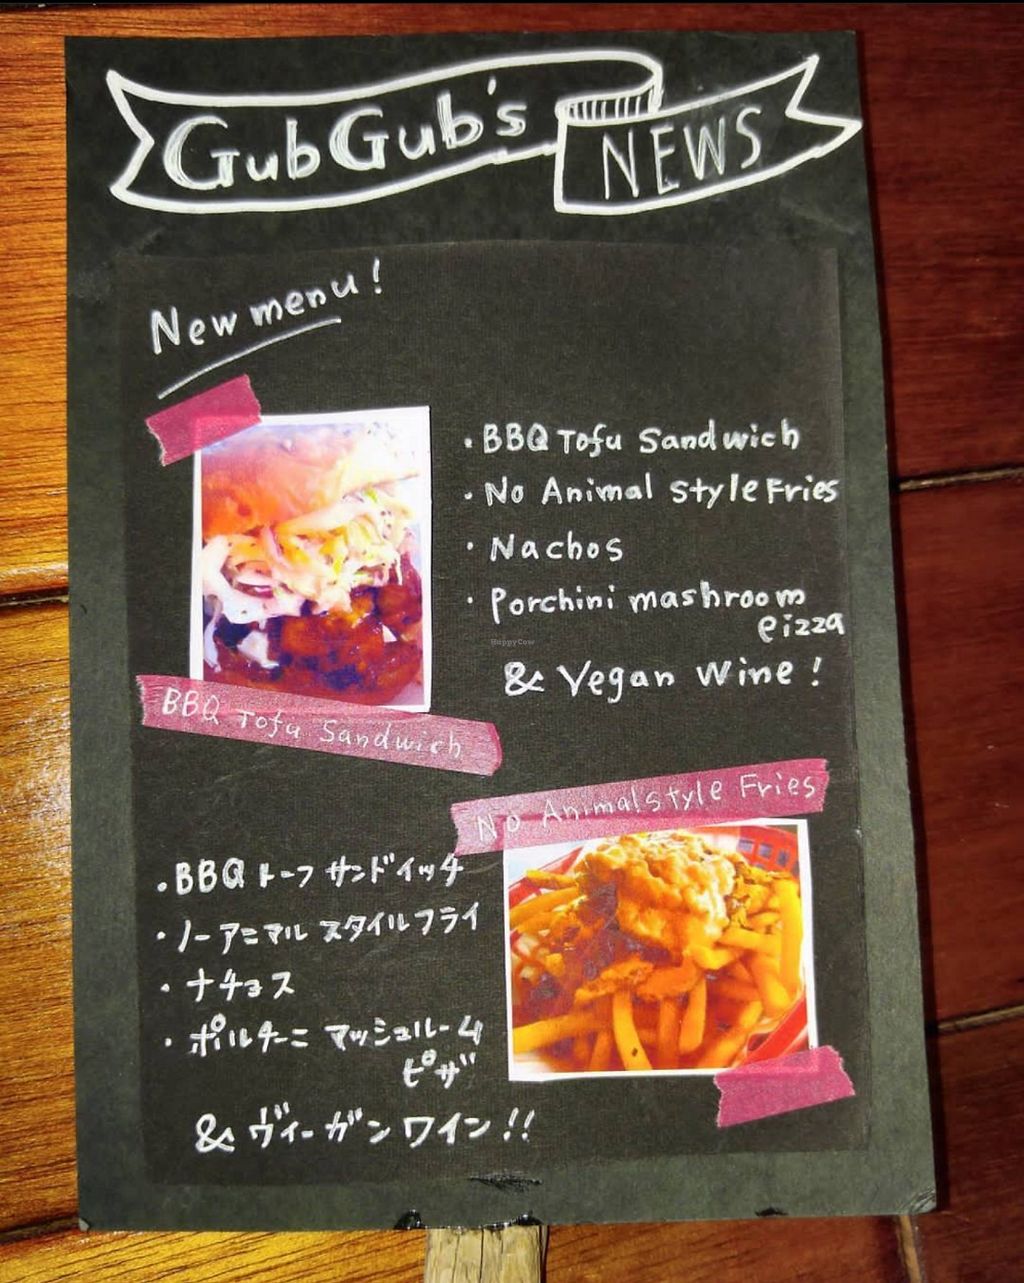 GubGub's NEWS
New menu!
・BBQ Tofu Sandwich
・No Animal Style Fries
・Nachos
・Porchini mashroom
Pizza
& Vegan Wine!
BBQ Tofu Sandwich
No Animal style Fries
・BBQ トーフ サンドイッチ
・ノーアニマル スタイルフライ
・ナチョス
・ポルチーニ マッシュルーム
ピザ
& ヴィーガン ワイン!!
HappyCow